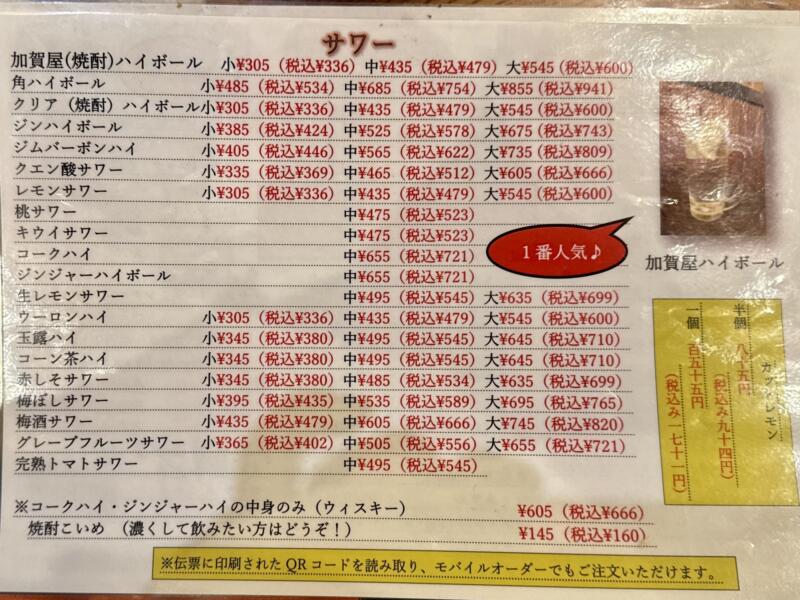 サワー
加賀屋(焼酎)ハイボール 小¥305（税込¥336）中¥435（税込¥479）大¥545（税込¥600）
角ハイボール 小¥485（税込¥534）中¥685（税込¥754）大¥855（税込¥941）
クリア（焼酎）ハイボール小¥305（税込¥336）中¥435（税込¥479）大¥545（税込¥600）
ジンハイボール 小¥385（税込¥424）中¥525（税込¥578）大¥675（税込¥743）
ジムバーボンハイ 小¥405（税込¥446）中¥565（税込¥622）大¥735（税込¥809）
クエン酸サワー 小¥335（税込¥369）中¥465（税込¥512）大¥605（税込¥666）
レモンサワー 小¥305（税込¥336）中¥435（税込¥479）大¥545（税込¥600）
桃サワー 中¥475（税込¥523）
キウイサワー 中¥475（税込¥523）
コークハイ 中¥655（税込¥721）
ジンジャーハイボール 中¥655（税込¥721）
生レモンサワー 中¥495（税込¥545）大¥635（税込¥699）
ウーロンハイ 小¥305（税込¥336）中¥435（税込¥479）大¥545（税込¥600）
玉露ハイ 小¥345（税込¥380）中¥495（税込¥545）大¥645（税込¥710）
コーン茶ハイ 小¥345（税込¥380）中¥495（税込¥545）大¥645（税込¥710）
赤しそサワー 小¥345（税込¥380）中¥485（税込¥534）大¥635（税込¥699）
梅ぼしサワー 小¥395（税込¥435）中¥535（税込¥589）大¥695（税込¥765）
梅酒サワー 小¥435（税込¥479）中¥605（税込¥666）大¥745（税込¥820）
グレープフルーツサワー 小¥365（税込¥402）中¥505（税込¥556）大¥655（税込¥721）
完熟トマトサワー 中¥495（税込¥545）
※コークハイ・ジンジャーハイの中身のみ（ウィスキー） ¥605（税込¥666）
焼酎こいめ （濃くして飲みたい方はどうぞ！） ¥145（税込¥160）
※伝票に印刷されたQRコードを読み取り、モバイルオーダーでもご注文いただけます。
1番人気♪
加賀屋ハイボール
カットレモン
半個 八十五円
（税込み九十四円）
一個 百五十五円
（税込み一七十一円）